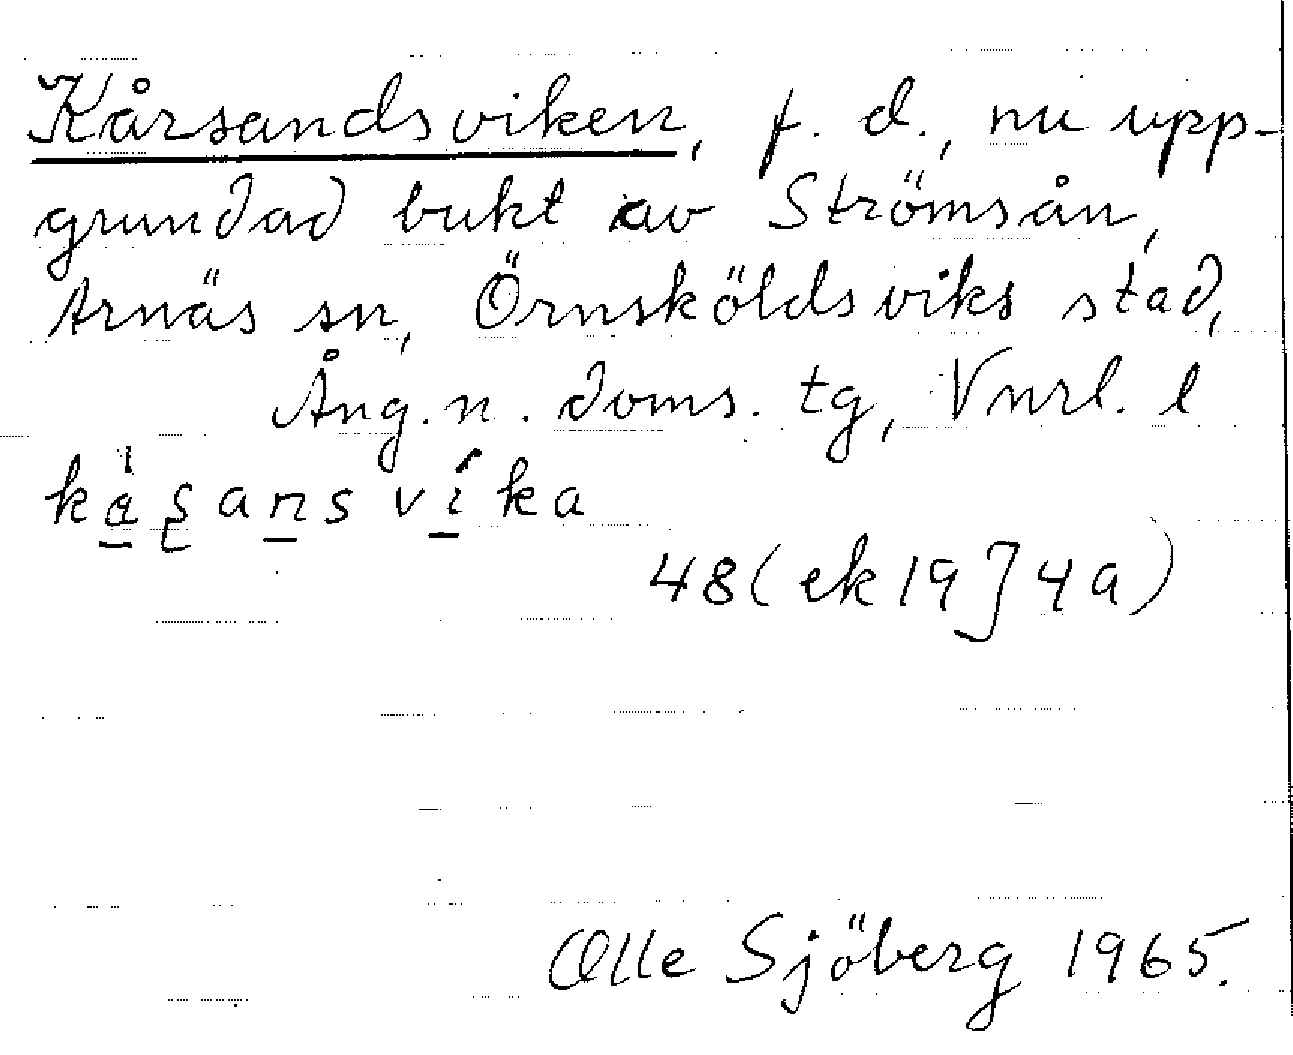 Kårsandsviken, f. d., nu upp-
grundad bukt av Strömsån,
Arnäs sn, Örnsköldsviks stad,
Ång. n. doms. tg, Vnrl. l
kåşansvíka
48 (ek 19 J 4a)
Olle Sjöberg 1965.